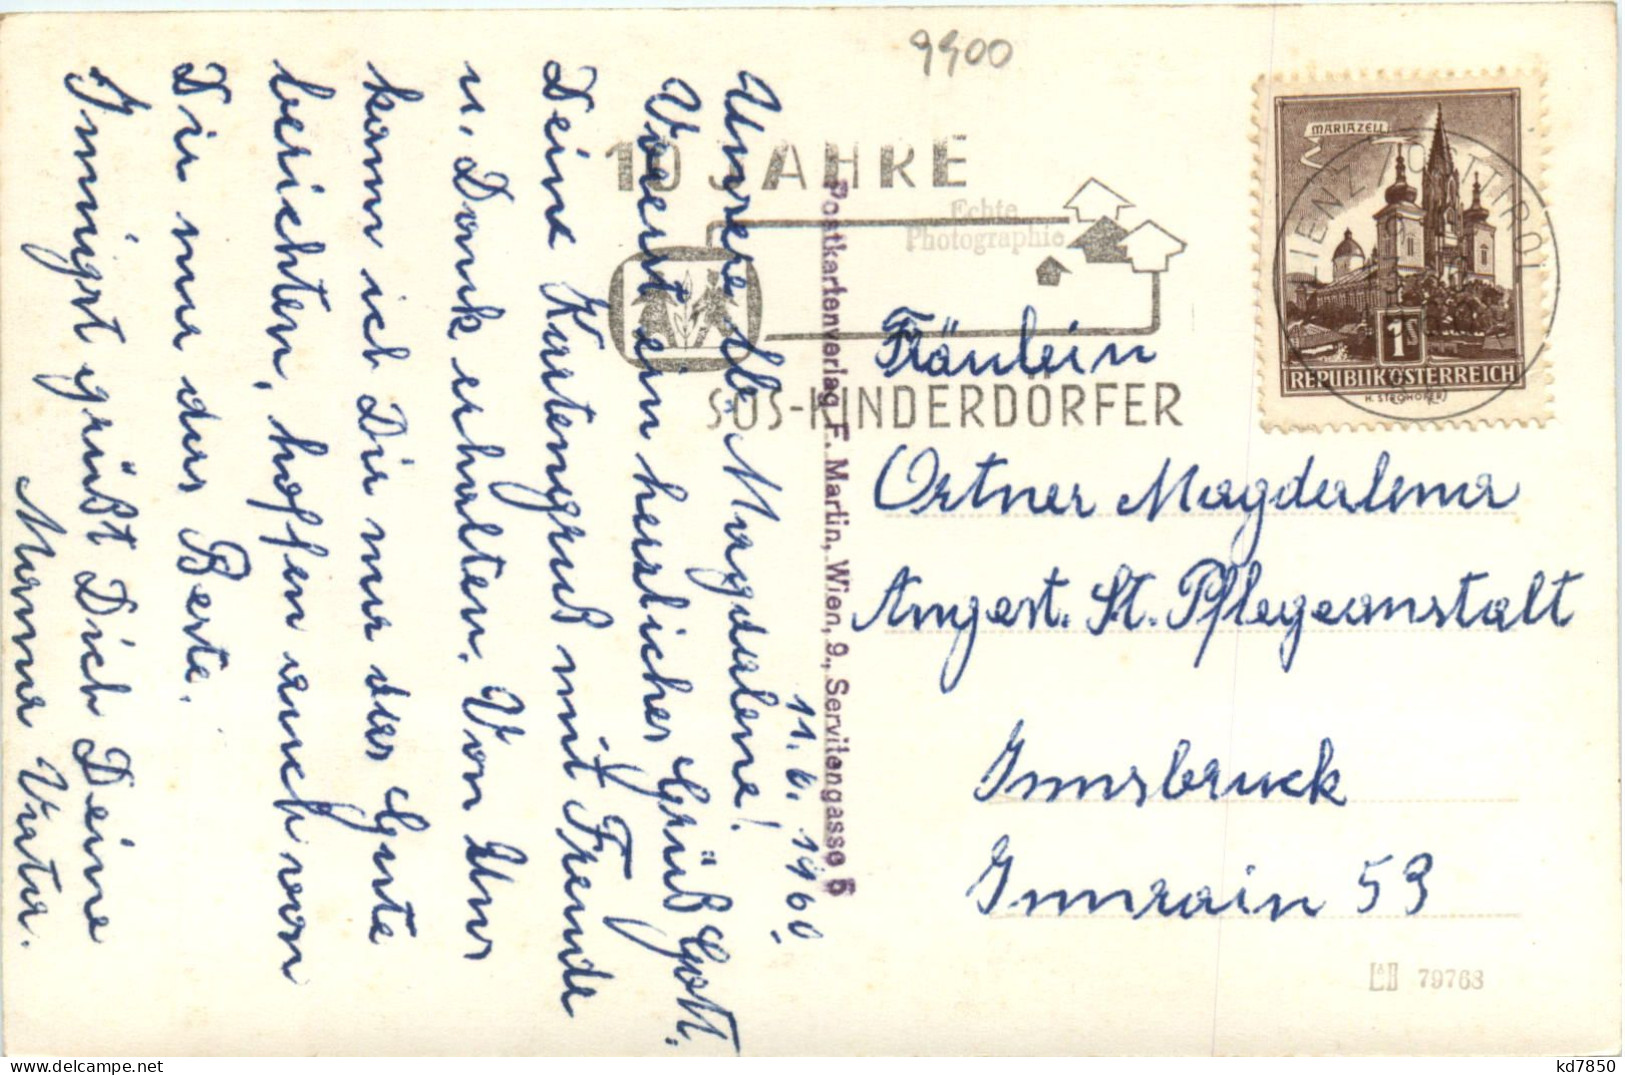 9900
10 JAHRE
Echte
Photographie
SOS-KINDERDÖRFER
MARIAZELL
LIENZ / OSTTIROL
1S
REPUBLIK ÖSTERREICH
H. STROHOFER
Postkartenverlag F. Martin, Wien, 9., Servitengasse 5
11. 6. 1960.
Unsere lb. Magdalena!
Voerst ein herzliches Grüß Gott.
Deine Kartengruß mit Freude
u. Dank erhalten. Von Uns
kann ich Dir nur das Gute
berichten, hoffen auch von
Dir nur das Beste.
Innigst grüßt Dich Deine
Mama Vater.
Fräulein
Ortner Magdalena
Angest. St. Pflegeanstalt
Innsbruck
Innrain 53
79768
kd7850